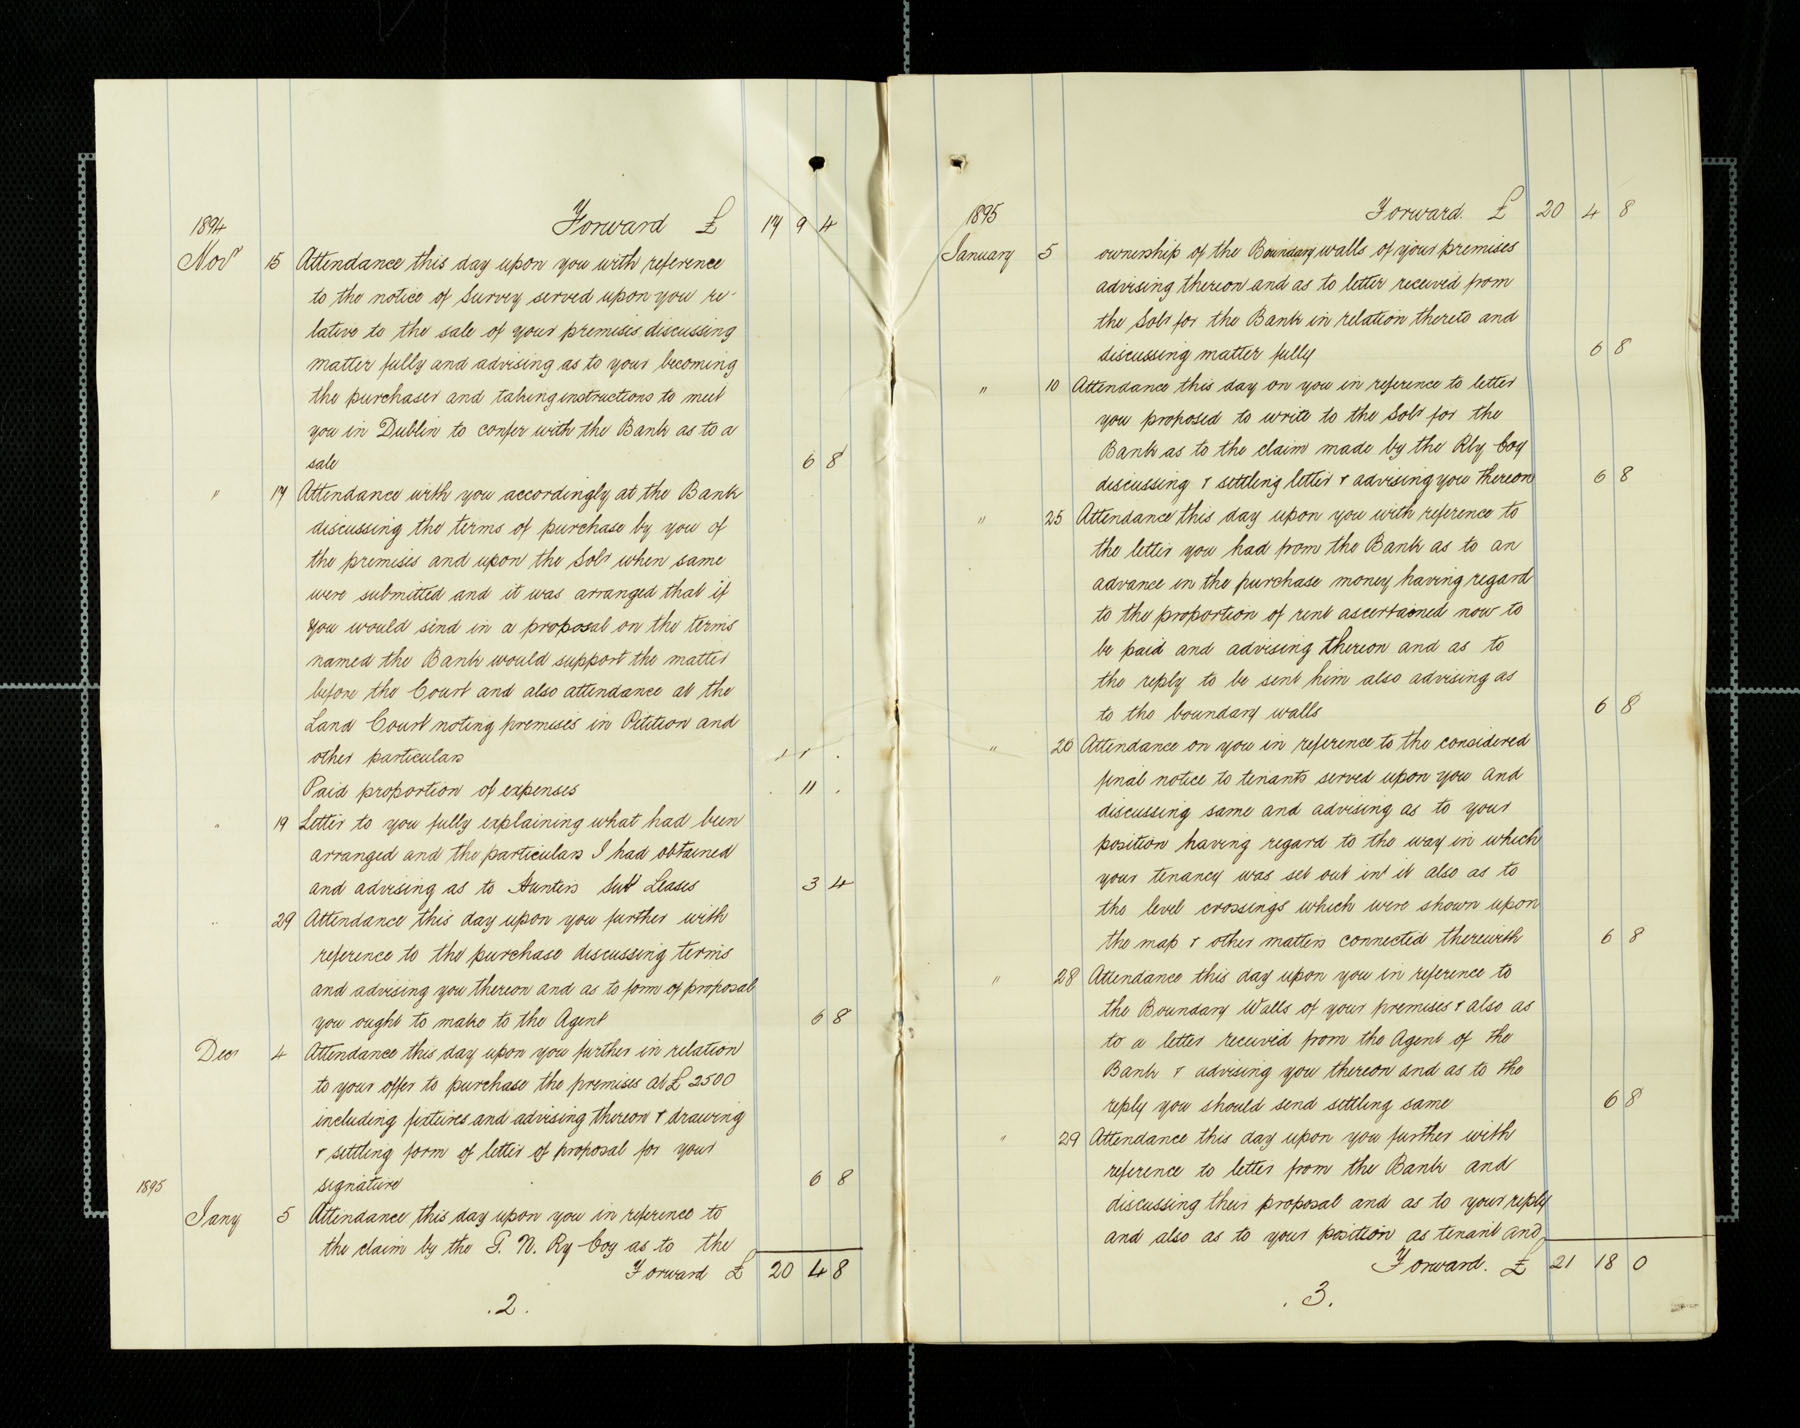 1894
Forward £ 17 9 4
Novr 15 Attendance this day upon you with reference
to the notice of Survey served upon you re-
lative to the sale of your premises discussing
matter fully and advising as to your becoming
the purchaser and taking instructions to meet
you in Dublin to confer with the Bank as to a
sale 6 8
" 17 Attendance with you accordingly at the Bank
discussing the terms of purchase by you of
the premises and upon the Solr when same
were submitted and it was arranged that if
you would send in a proposal on the terms
named the Bank would support the matter
before the Court and also attendance at the
Land Court noting premises in Petition and
other particulars 1 1 .
Paid proportion of expenses . 11 .
" 19 Letter to you fully explaining what had been
arranged and the particulars I had obtained
and advising as to Hunters Sub Leases 3 4
" 29 Attendance this day upon you further with
reference to the purchase discussing terms
and advising you thereon and as to form of proposal
you ought to make to the Agent 6 8
Decr 4 Attendance this day upon you further in relation
to your offer to purchase the premises at £2500
including fixtures and advising thereon & drawing
& settling form of letter of proposal for your
signature 6 8
1895
Jany 5 Attendance this day upon you in reference to
the claim by the G. N. Ry Coy as to the
Forward £ 20 4 8
.2.
1895
Forward. £ 20 4 8
January 5 ownership of the Boundary walls of your premises
advising thereon and as to letter received from
the Solr for the Bank in relation thereto and
discussing matter fully 6 8
" 10 Attendance this day on you in reference to letter
you proposed to write to the Solr for the
Bank as to the claim made by the Rly Coy
discussing & settling letter & advising you thereon 6 8
" 25 Attendance this day upon you with reference to
the letter you had from the Bank as to an
advance in the purchase money having regard
to the proportion of rent ascertained now to
be paid and advising thereon and as to
the reply to be sent him also advising as
to the boundary walls 6 8
" 26 Attendance on you in reference to the considered
final notice to tenants served upon you and
discussing same and advising as to your
position having regard to the way in which
your tenancy was set out in it also as to
the level crossings which were shown upon
the map & other matters connected therewith 6 8
" 28 Attendance this day upon you in reference to
the Boundary Walls of your premises & also as
to a letter received from the Agent of the
Bank & advising you thereon and as to the
reply you should send settling same 6 8
" 29 Attendance this day upon you further with
reference to letter from the Bank and
discussing their proposal and as to your reply
and also as to your position as tenant and
Forward. £ 21 18 0
.3.